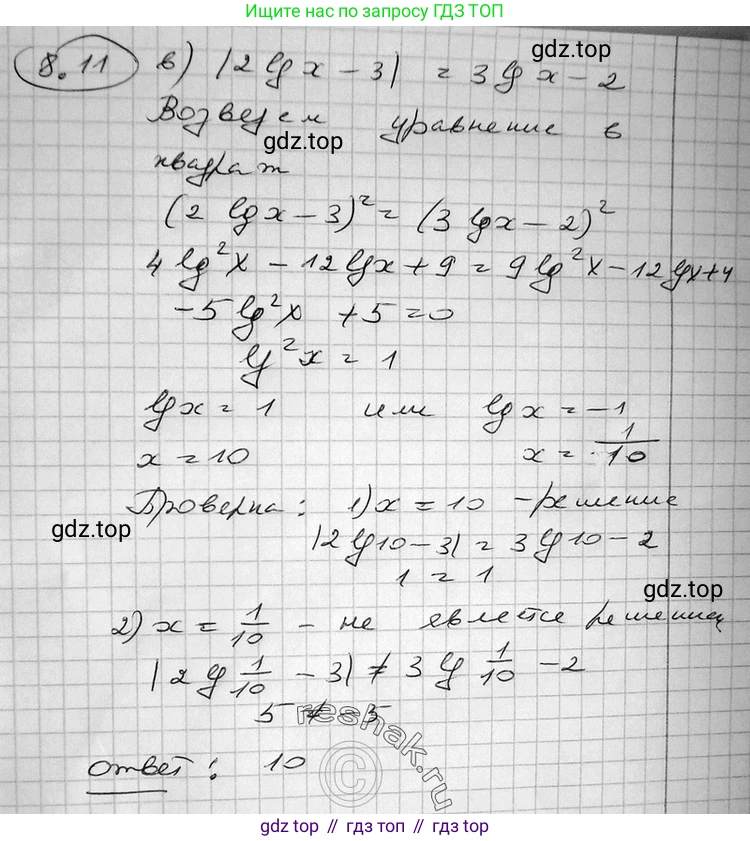 Ищите нас по запросу ГДЗ ТОП
8.11 в) |2 lg x - 3| = 3 lg x - 2
gdz.top
Возведем уравнение в
gdz.top
квадрат
(2 lg x - 3)² = (3 lg x - 2)²
4 lg² x - 12 lg x + 9 = 9 lg² x - 12 lg x + 4
-5 lg² x + 5 = 0
lg² x = 1
lg x = 1 или lg x = -1
x = 10 x = 1/10
Проверка: 1) x = 10 - решение
gdz.top
|2 lg 10 - 3| = 3 lg 10 - 2
1 = 1
gdz.top
2) x = 1/10 - не явлется решением
|2 lg 1/10 - 3| ≠ 3 lg 1/10 - 2
5 ≠ -5
reshak.ru
©
Ответ: 10
gdz.top // гдз топ // gdz.top